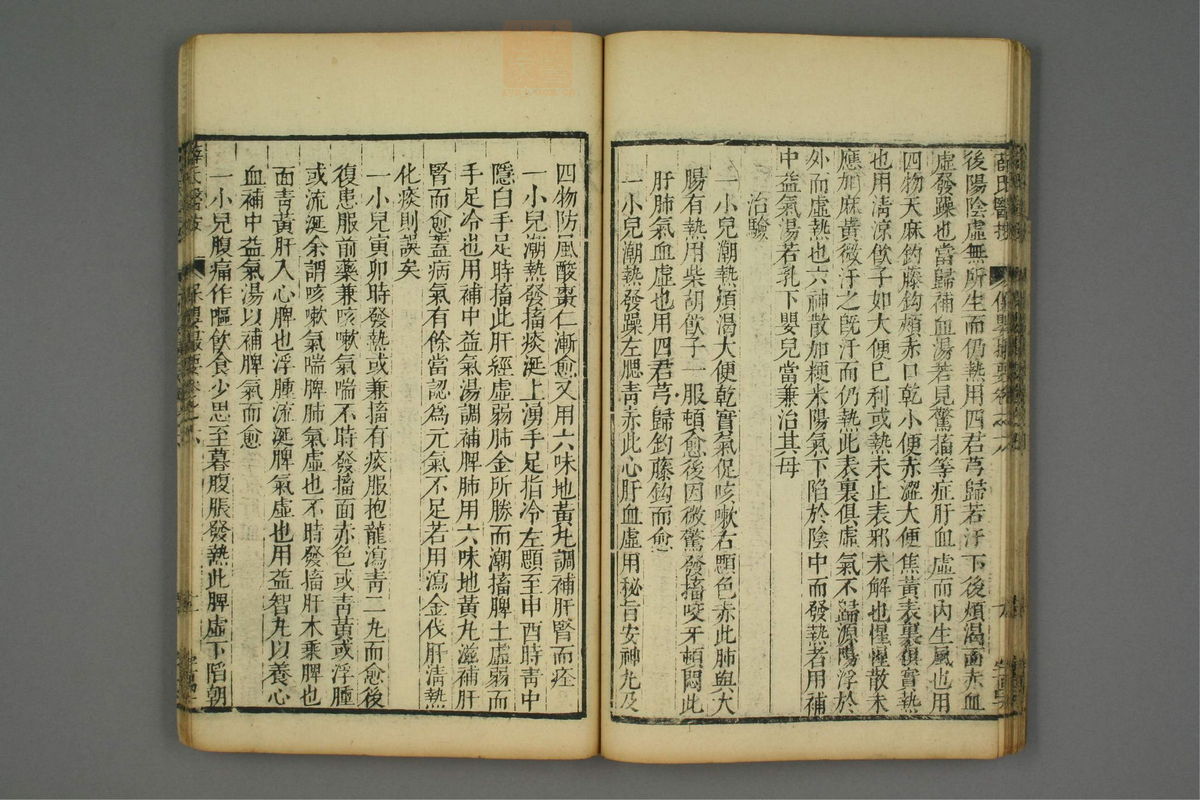 薛氏醫按
保嬰撮要卷之六
後陽陰虛無所生而仍熱用四君芎歸若汗下後煩渴面赤血
虛發躁也當歸補血湯若見驚搐等症肝血虛而內生風也用
四物天麻鈎藤鈎頰赤口乾小便赤澀大便焦黃表裏俱實熱
也用清凉飲子如大便已利或熱未止表邪未解也惺惺散未
應加麻黃微汗之旣汗而仍熱此表裏俱虛氣不歸源陽浮於
外而虛熱也六神散加粳米陽氣下陷於陰中而發熱者用補
中益氣湯若乳下嬰兒當兼治其母
治驗
一小兒潮熱煩渴大便乾實氣促咳嗽右顋色赤此肺與大
腸有熱用柴胡飲子一服頓愈後因微驚發搐咬牙頓悶此
肝肺氣血虛也用四君芎歸鈎藤鈎而愈
一小兒潮熱發躁左腮青赤此心肝血虛用秘旨安神丸及
四物防風酸棗仁漸愈又用六味地黃丸調補肝腎而痊
一小兒潮熱發搐痰涎上湧手足指冷左顋至申酉時青中
隱白手足時搐此肝經虛弱肺金所勝而潮搐脾土虛弱而
手足冷也用補中益氣湯調補脾肺用六味地黃丸滋補肝
腎而愈蓋病氣有餘當認爲元氣不足若用瀉金伐肝清熱
化痰則誤矣
一小兒寅卯時發熱或兼搐有痰服抱龍瀉青二丸而愈後
復患服前藥兼咳嗽氣喘不時發搐面赤色或青黃或浮腫
或流涎余謂咳嗽氣喘脾肺氣虛也不時發搐肝木乘脾也
面青黃肝入心脾也浮腫流涎脾氣虛也用益智丸以養心
血補中益氣湯以補脾氣而愈
一小兒腹痛作嘔飲食少思至暮腹脹發熱此脾虛下陷朝
薛氏醫按
保嬰撮要卷之六